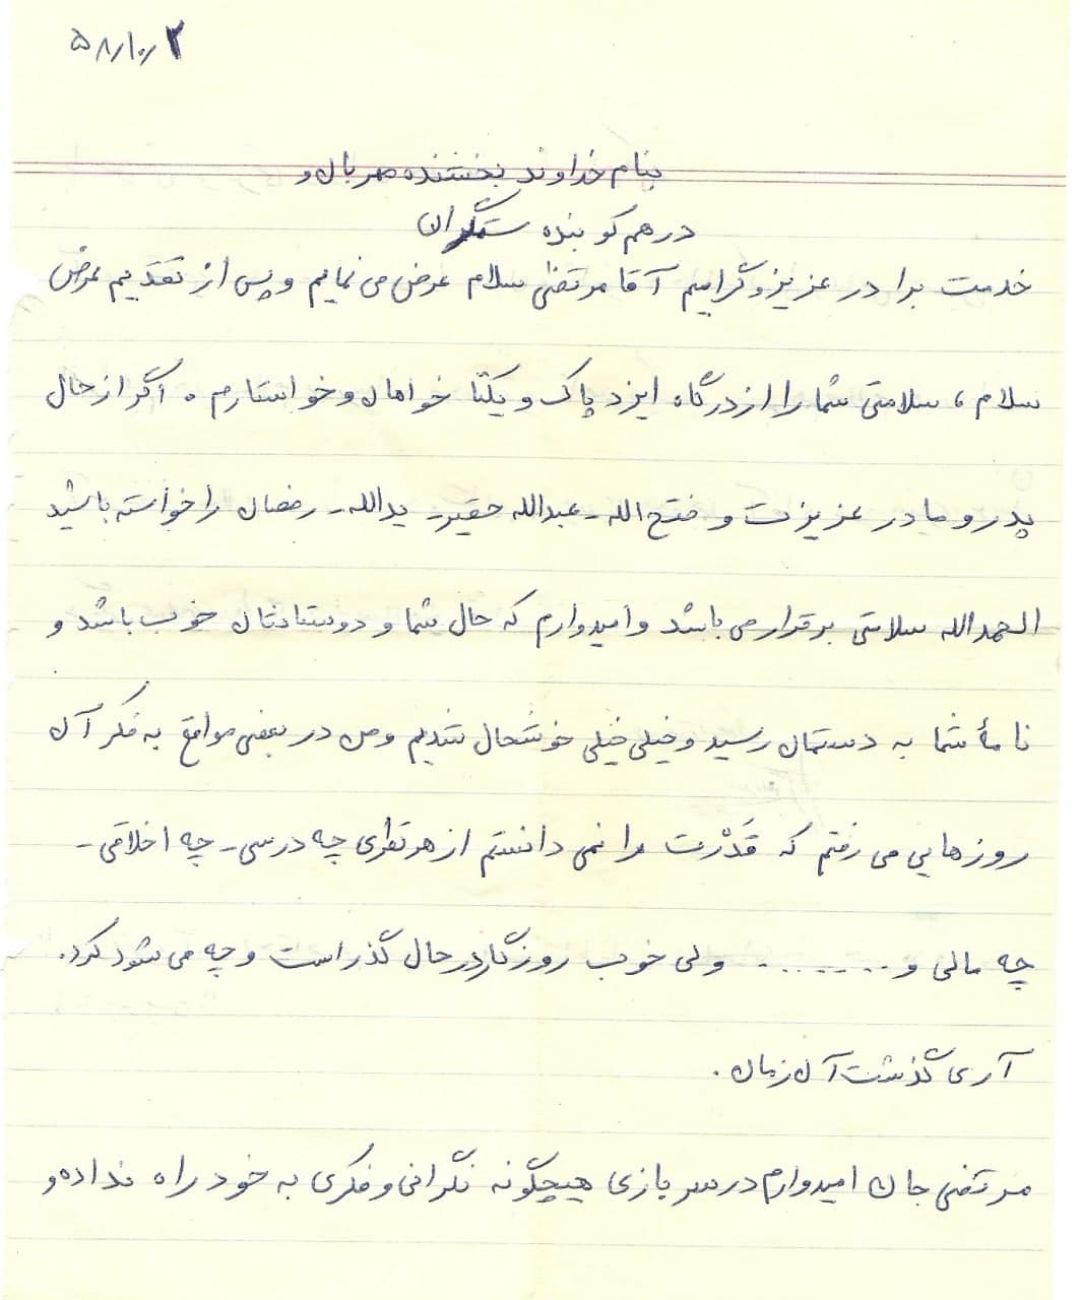 ۵۸/۱۰/۲
بنام خداوند بخشنده مهربان و
درهم کوبنده ستمگران
خدمت برادر عزیز و گرامیم آقا مرتضی سلام عرض می نمایم و پس از تقدیم عرض
سلام ، سلامتی شما را از درگاه ایزد پاک و یکتا خواهان و خواستارم . اگر از حال
پدر و مادر عزیزت و فتح الله - عبدالله حقیر - یدالله - رمضان را خواسته باشید
الحمدالله سلامتی برقرار می باشد و امیدوارم که حال شما و دوستانتان خوب باشد و
نامهٔ شما به دستمان رسید و خیلی خیلی خوشحال شدیم و من در بعضی مواقع به فکر آن
روزهایی می رفتم که قَدْرت را نمی دانستم از هر نظری چه درسی - چه اخلاقی -
چه مالی و ........ ولی خوب روزگار در حال گذر است و چه می شود کرد.
آری گذشت آن زمان .
مرتضی جان امیدوارم در سربازی هیچگونه نگرانی و فکری به خود راه نداده و